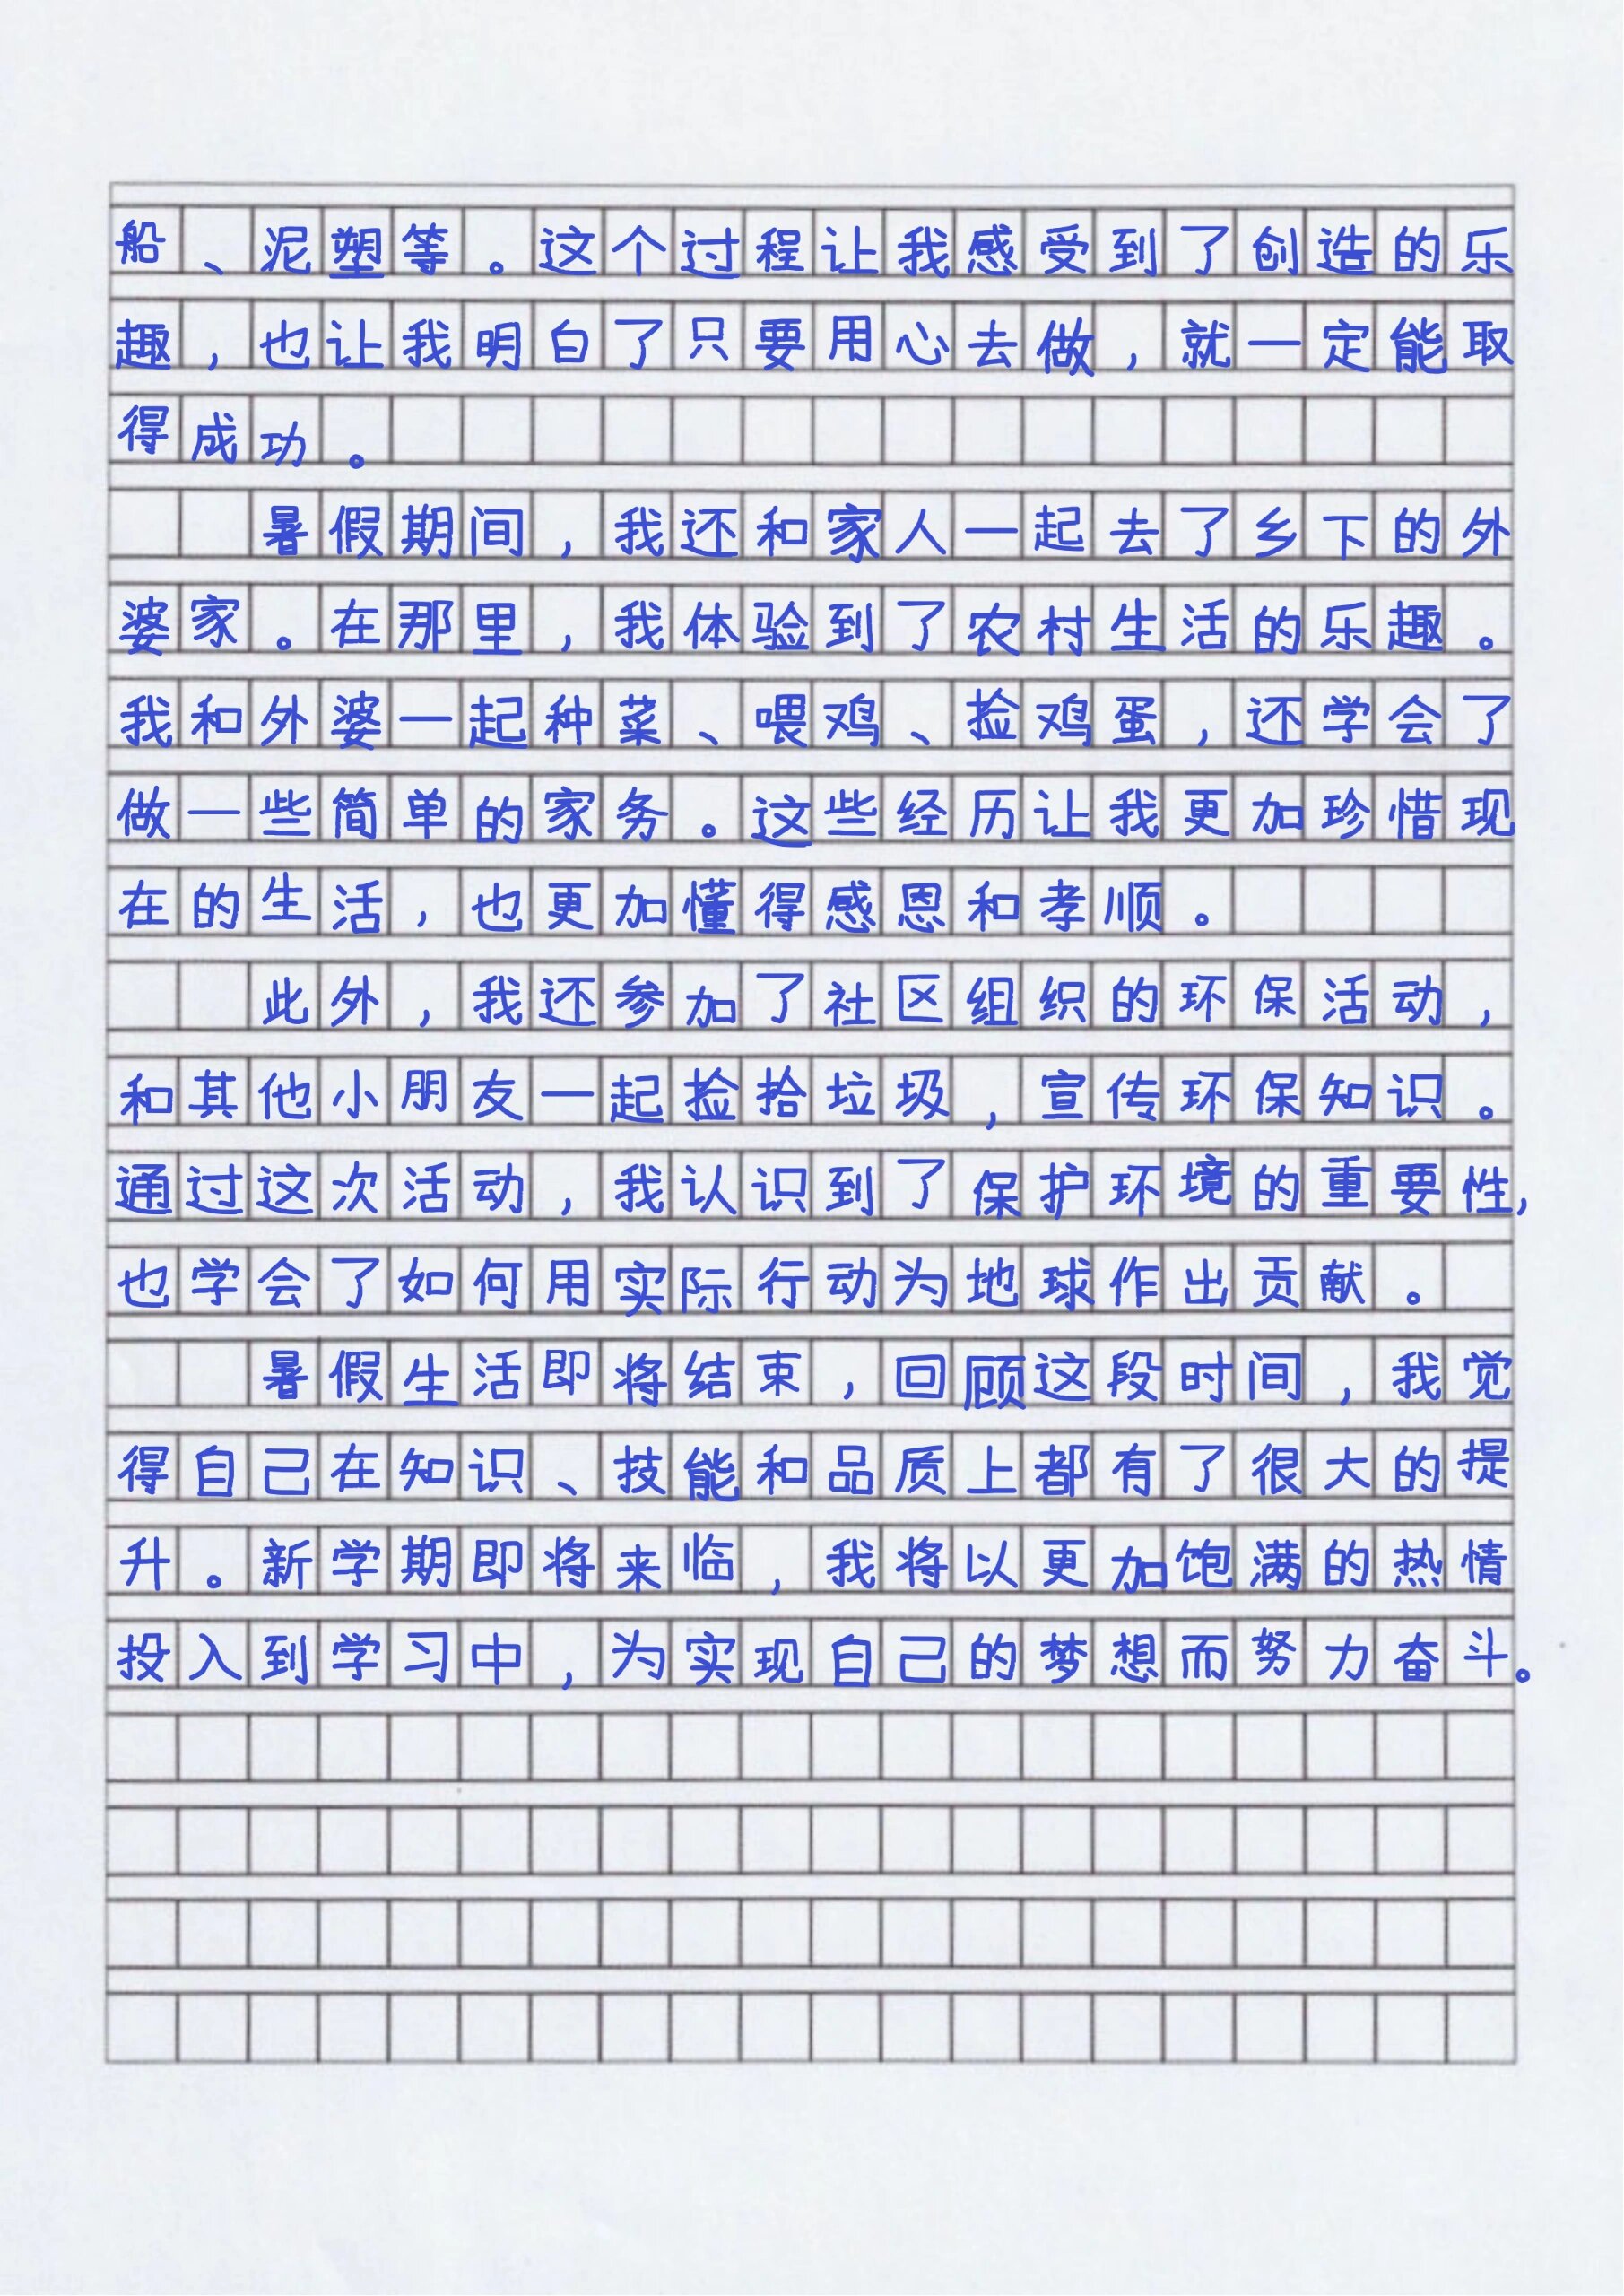 船、泥塑等。这个过程让我感受到了创造的乐
趣，也让我明白了只要用心去做，就一定能取
得成功。
暑假期间，我还和家人一起去了乡下的外
婆家。在那里，我体验到了农村生活的乐趣。
我和外婆一起种菜、喂鸡、捡鸡蛋，还学会了
做一些简单的家务。这些经历让我更加珍惜现
在的生活，也更加懂得感恩和孝顺。
此外，我还参加了社区组织的环保活动，
和其他小朋友一起捡拾垃圾，宣传环保知识。
通过这次活动，我认识到了保护环境的重要性，
也学会了如何用实际行动为地球作出贡献。
暑假生活即将结束，回顾这段时间，我觉
得自己在知识、技能和品质上都有了很大的提
升。新学期即将来临，我将以更加饱满的热情
投入到学习中，为实现自己的梦想而努力奋斗。